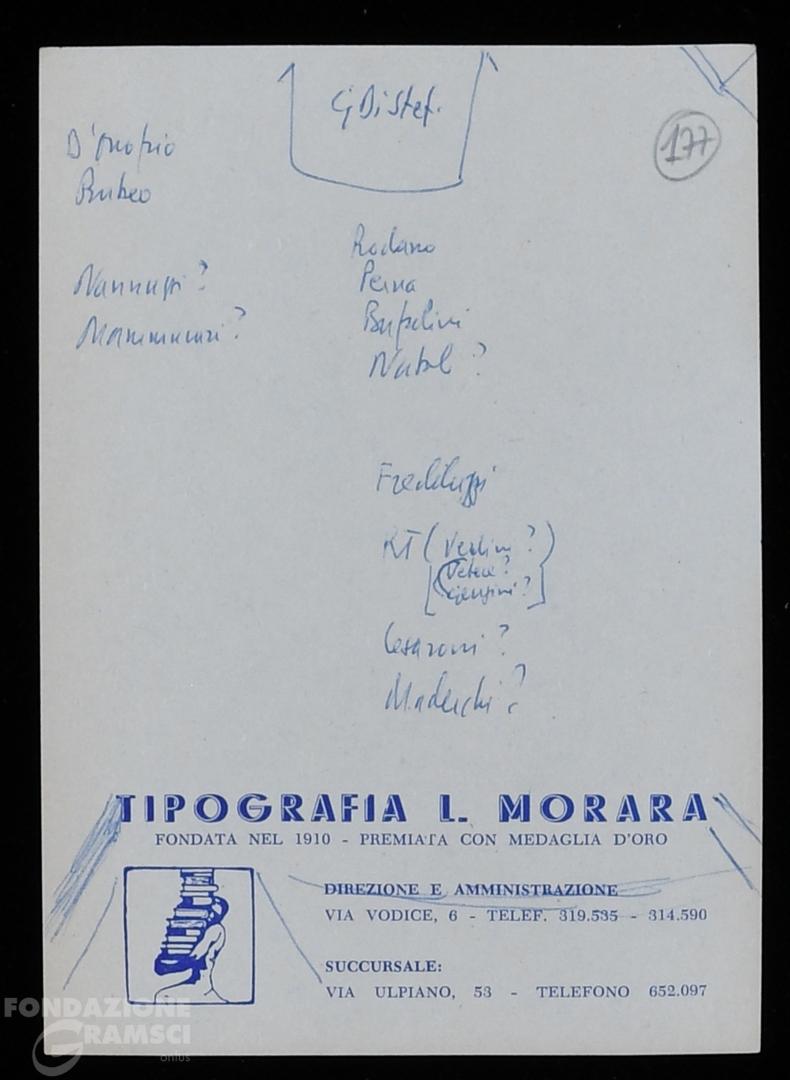 G Di Stef.
177
D'Onofrio
Bufseo
Nannuzzi?
Mammucari?
Rodano
Perna
Bufalini
Natol?
Fredduzzi
RT (Verdini?)
[Vetere?
Cesaroni?
Maderchi?
TIPOGRAFIA L. MORARA
FONDATA NEL 1910 - PREMIATA CON MEDAGLIA D'ORO
DIREZIONE E AMMINISTRAZIONE
VIA VODICE, 6 - TELEF. 319.535 - 314.590
SUCCURSALE:
VIA ULPIANO, 53 - TELEFONO 652.097
FONDAZIONE
GRAMSCI
onlus